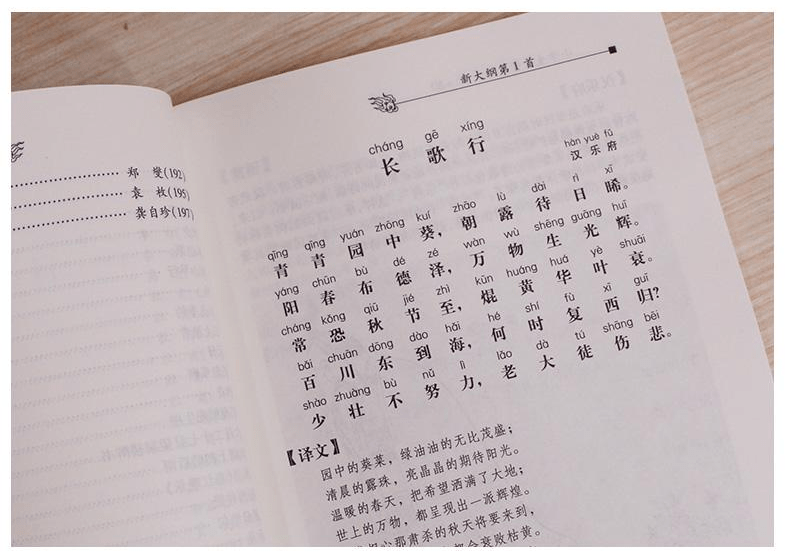 郑 燮(192)
袁 枚(195)
龚自珍(197)
新大纲第1首
cháng gē xíng
长 歌 行
hàn yuè fǔ
汉 乐 府
qīng qīng yuán zhōng kuí zhāo lù dài rì xī
青 青 园 中 葵，朝 露 待 日 晞。
yáng chūn bù dé zé wàn wù shēng guāng huī
阳 春 布 德 泽，万 物 生 光 辉。
cháng kǒng qiū jié zhì kūn huáng huá yè shuāi
常 恐 秋 节 至，焜 黄 华 叶 衰。
bǎi chuān dōng dào hǎi hé shí fù xī guī
百 川 东 到 海，何 时 复 西 归？
shào zhuàng bù nǔ lì lǎo dà tú shāng bēi
少 壮 不 努 力，老 大 徒 伤 悲。
【译文】
园中的葵菜，绿油油的无比茂盛；
清晨的露珠，亮晶晶的期待阳光。
温暖的春天，把希望洒满了大地；
世上的万物，都呈现出一派辉煌。
担心那肃杀的秋天将要来到，
都会衰败枯黄。